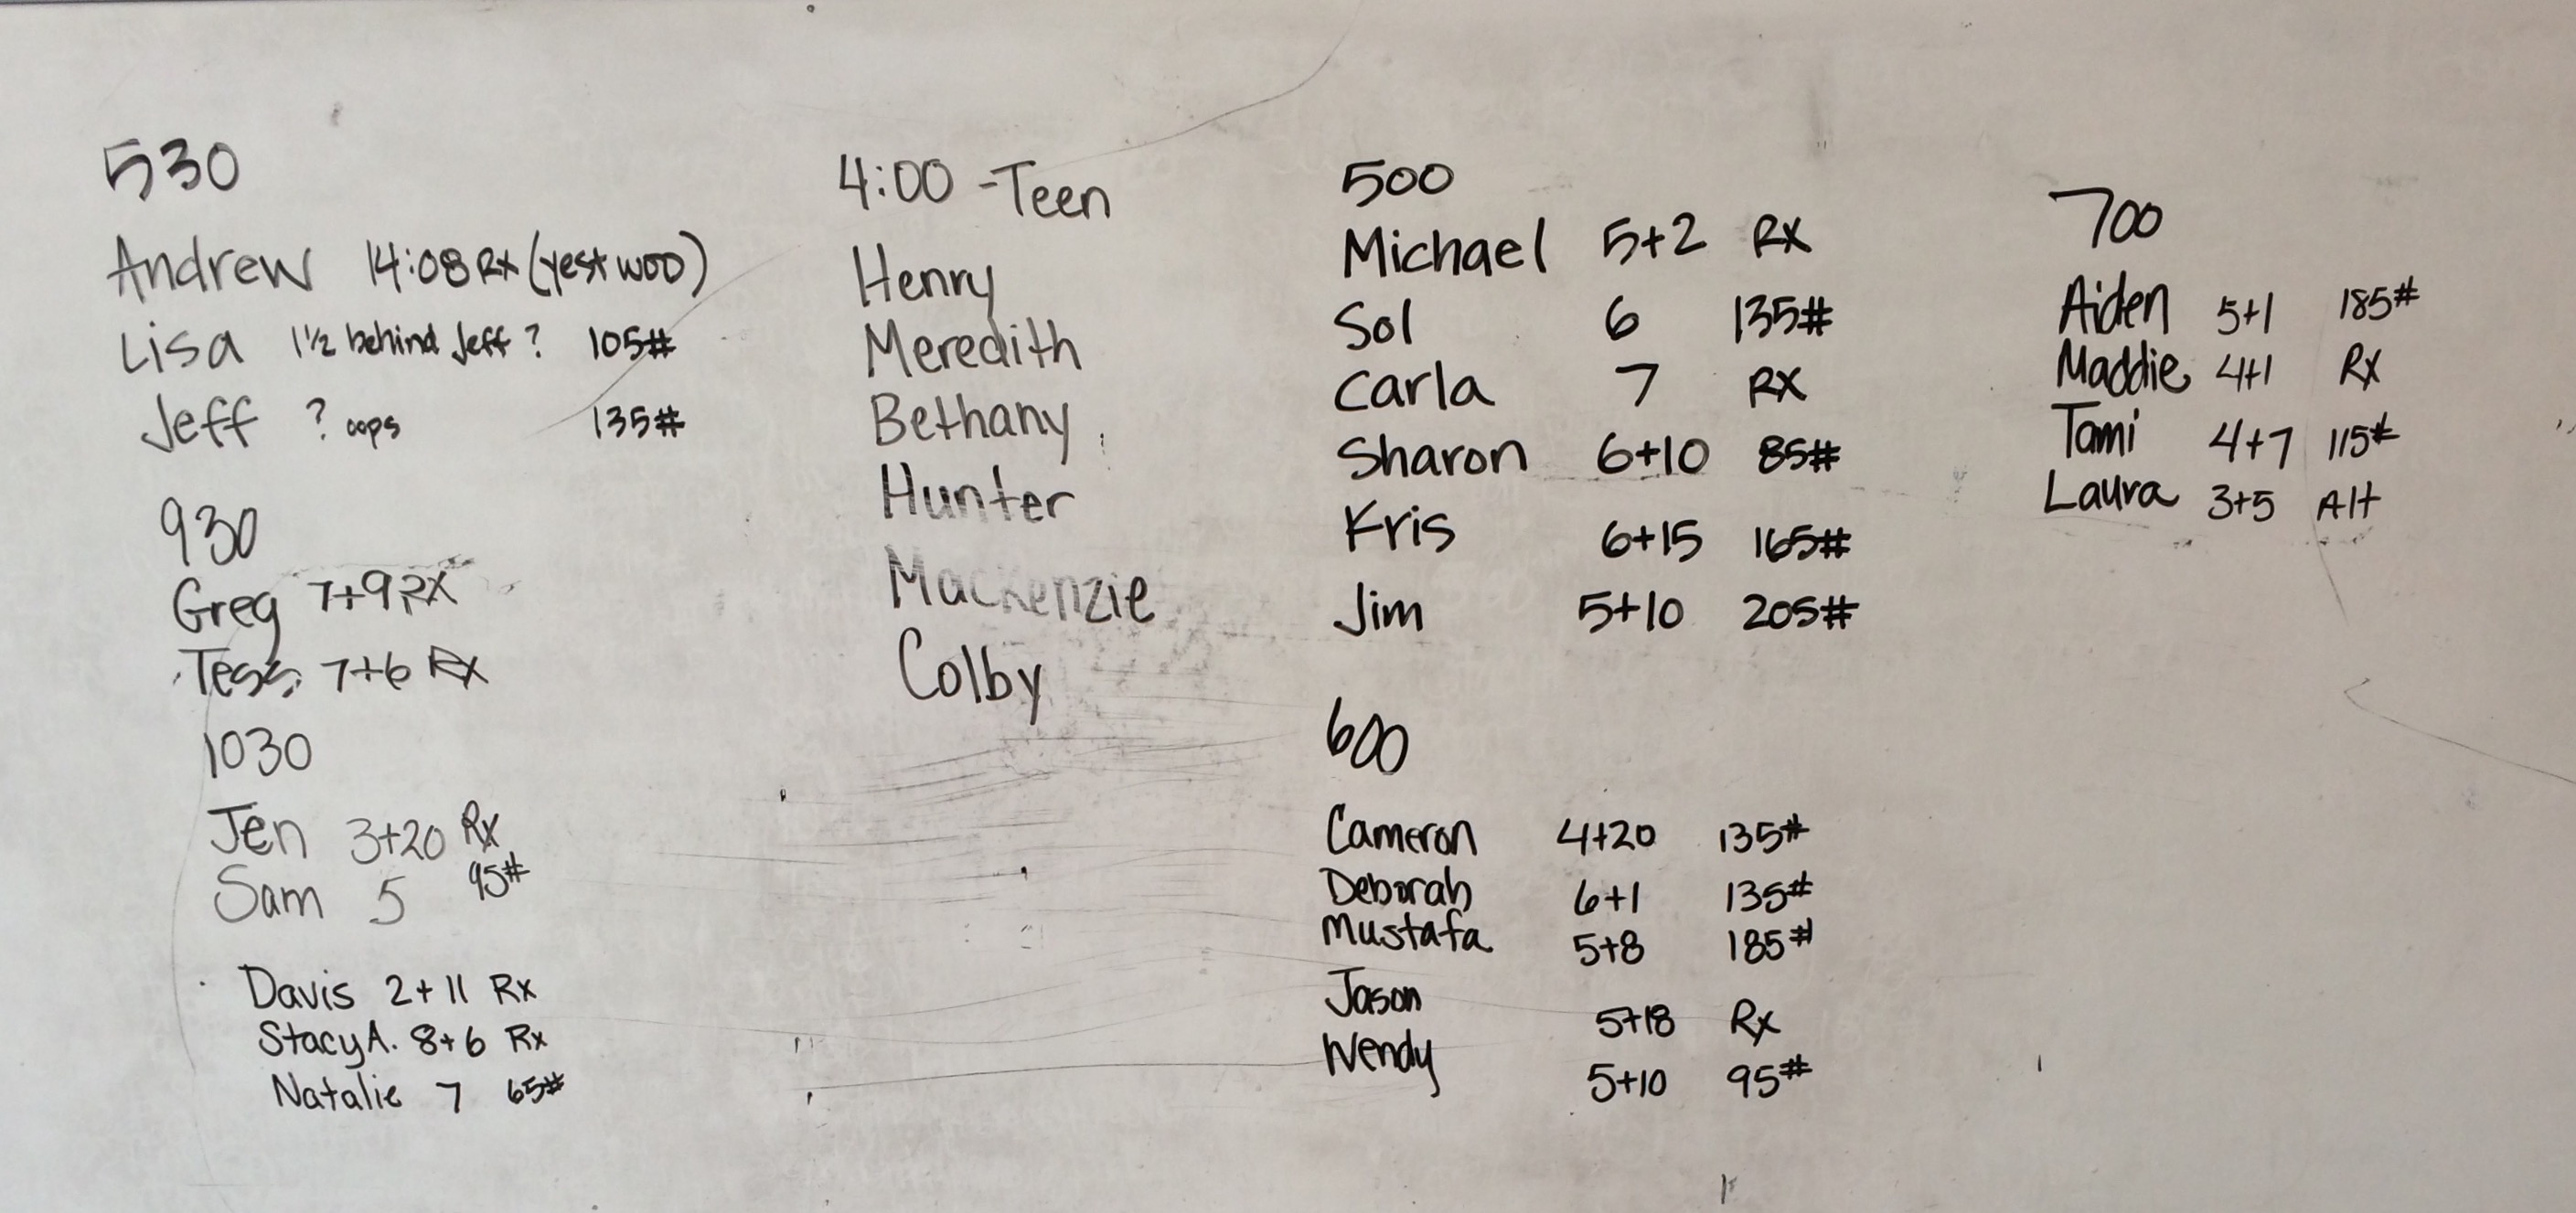 530
Andrew 14:08 Rx (yest WOD)
Lisa 1½ behind Jeff ? 105#
Jeff ? oops 135#
930
Greg 7+9 RX
Tess 7+6 Rx
1030
Jen 3+20 Rx
Sam 5 95#
Davis 2+11 Rx
Stacy A. 8+6 Rx
Natalie 7 65#
4:00 - Teen
Henry
Meredith
Bethany
Hunter
Mackenzie
Colby
500
Michael 5+2 RX
Sol 6 135#
Carla 7 RX
Sharon 6+10 85#
Kris 6+15 165#
Jim 5+10 205#
600
Cameron 4+20 135#
Deborah 6+1 135#
Mustafa 5+8 185#
Jason 5+18 Rx
Wendy 5+10 95#
700
Aiden 5+1 185#
Maddie 4+1 Rx
Tami 4+7 115#
Laura 3+5 Alt